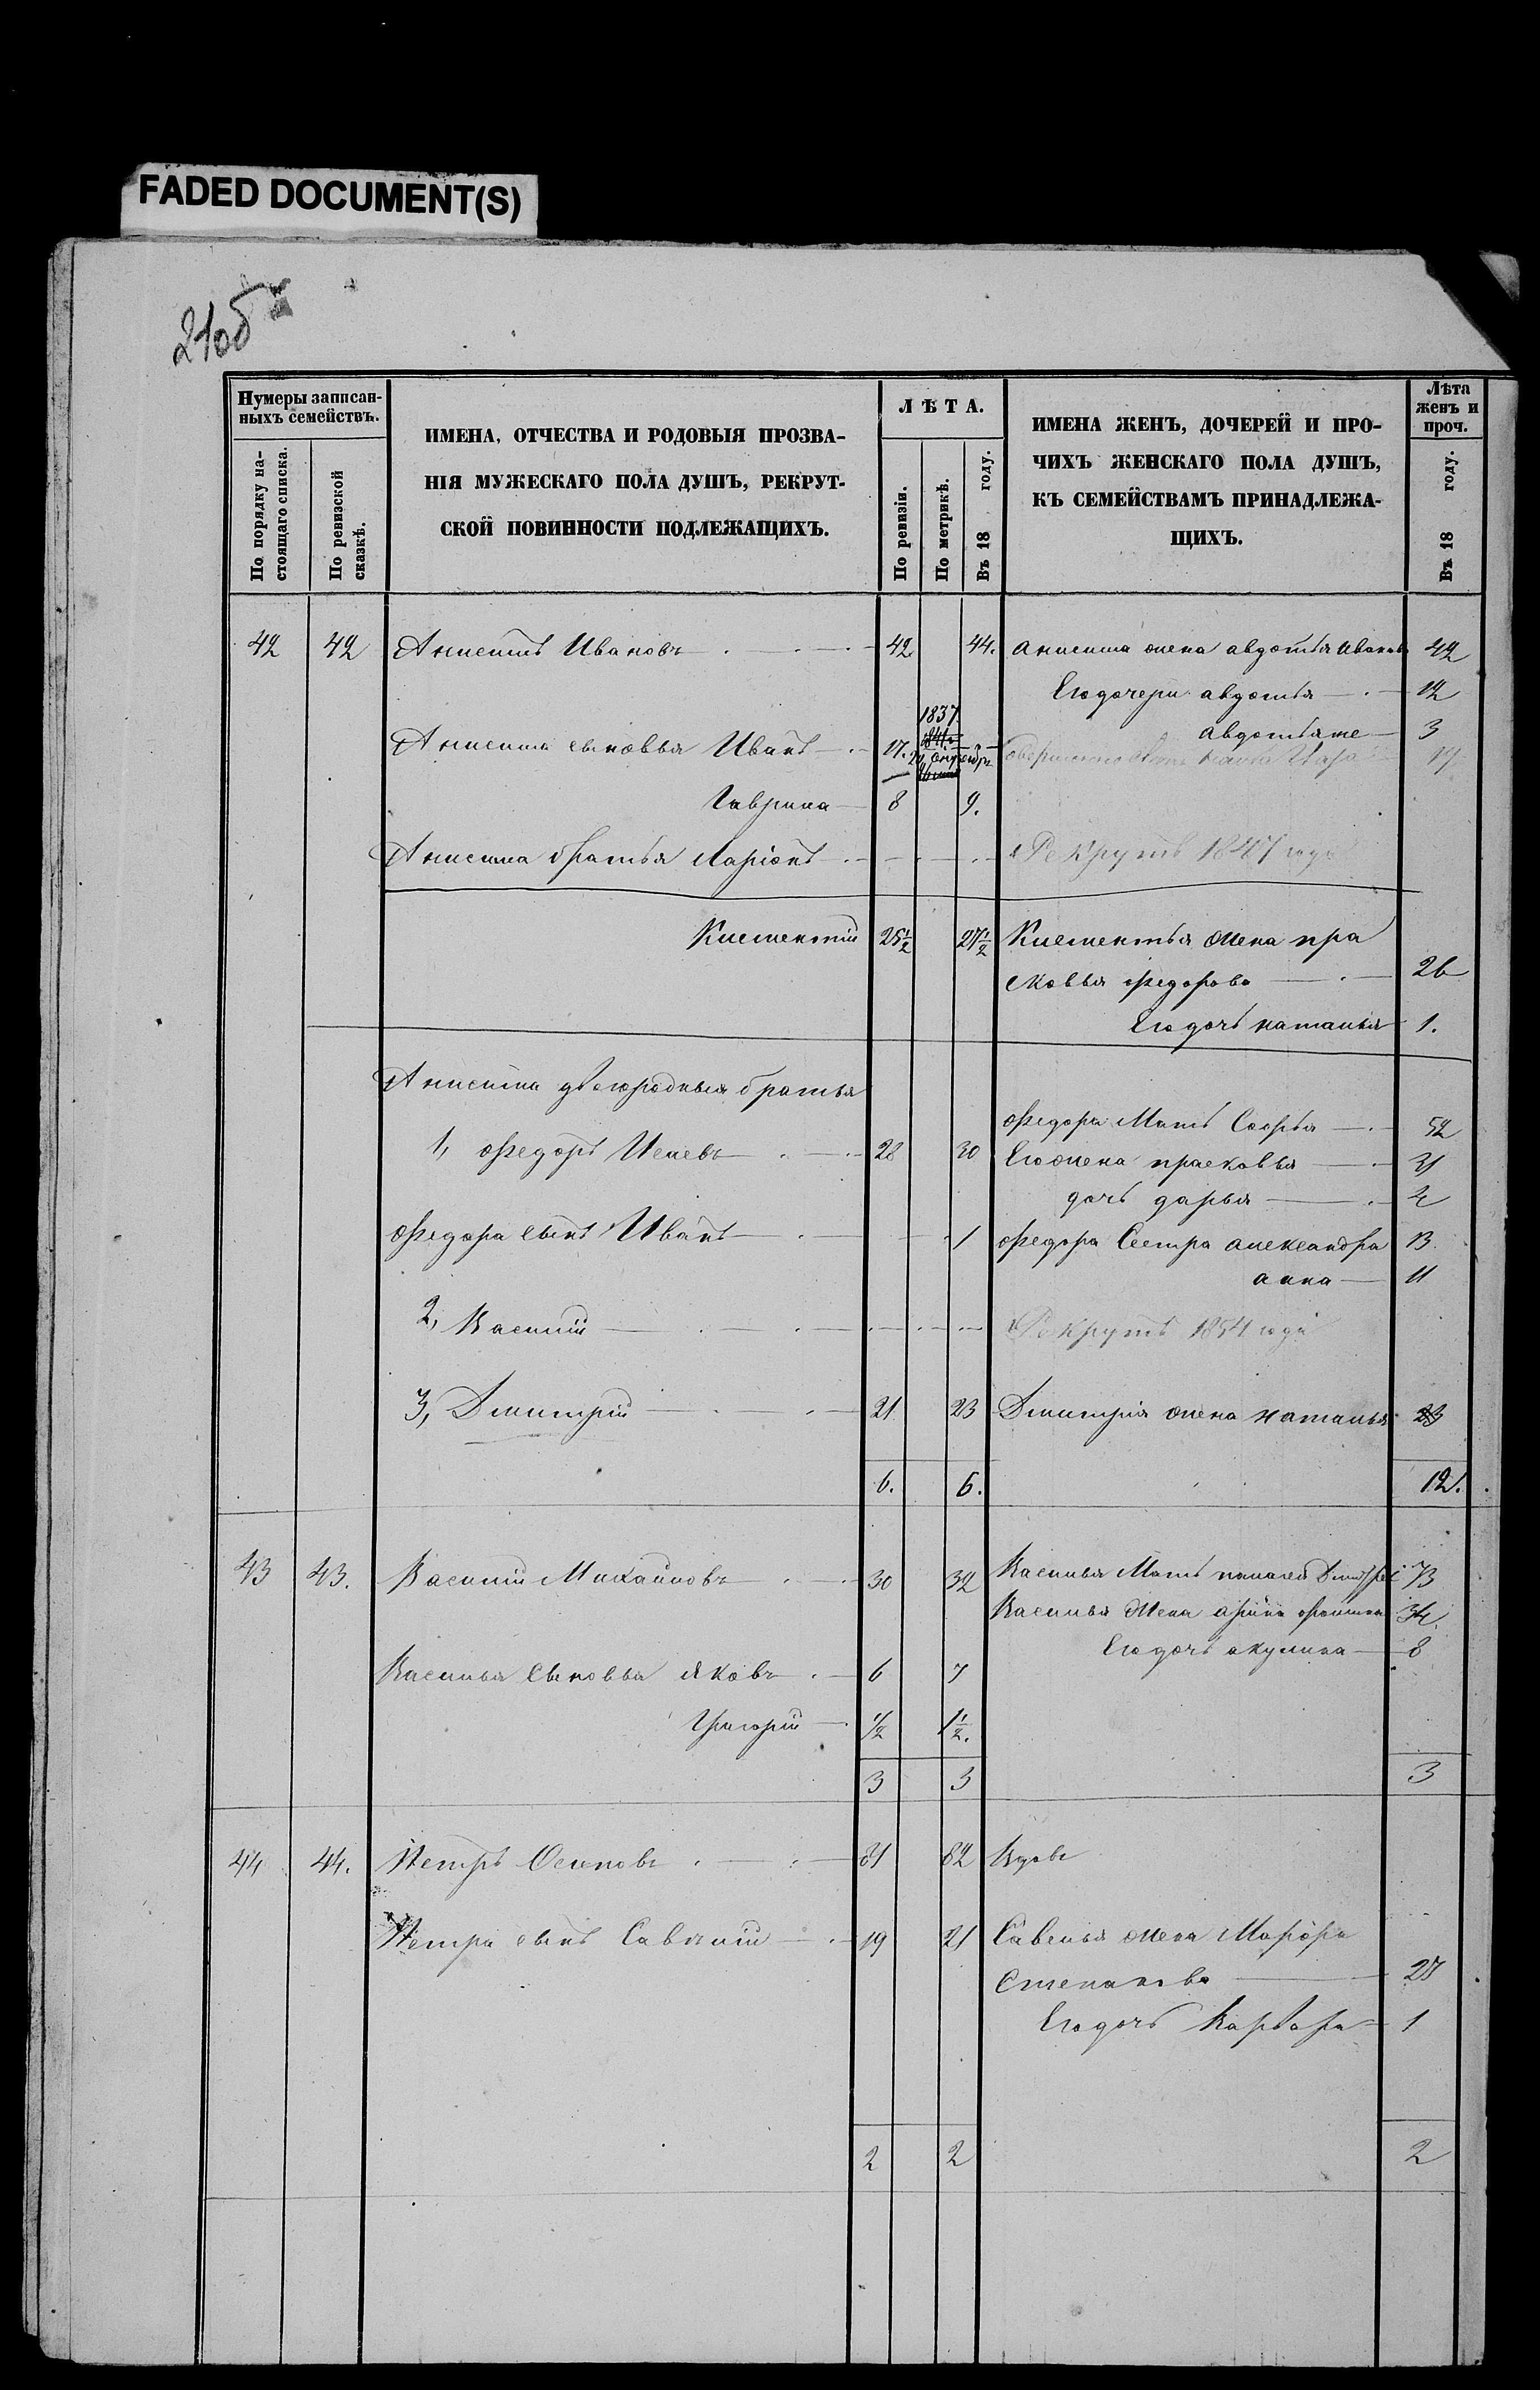 FADED DOCUMENT(S)
21об
Нумеры записан-
ныхъ семействъ.
По порядку на-
стоящаго списка.
По ревизской
сказкѣ.
ИМЕНА, ОТЧЕСТВА И РОДОВЫЯ ПРОЗВА-
НІЯ МУЖЕСКАГО ПОЛА ДУШЪ, РЕКРУТ-
СКОЙ ПОВИННОСТИ ПОДЛЕЖАЩИХЪ.
ЛѢТА.
По ревизіи.
По метрикѣ.
Въ 18 году.
ИМЕНА ЖЕНЪ, ДОЧЕРЕЙ И ПРО-
ЧИХЪ ЖЕНСКАГО ПОЛА ДУШЪ,
КЪ СЕМЕЙСТВАМЪ ПРИНАДЛЕЖА-
ЩИХЪ.
Лѣта
женъ и
проч.
Въ 18 году.
42 42 Анисимъ Ивановъ 42 44. Анисима жена авдотья Иванов 42
Его дочери авдотья 12
авдотья же 3
Анисима сыновья Иванъ 17. 1837
Гаврила 8 9.
Анисима братья Ларіонъ Рекрутъ 1847 года
Климентій 25½ 27½ Климентья жена пра
сковья федорова 26
Его дочь наталья 1.
Анисима двоюродныя братья
федора Мать Софья 52
1, федоръ 28 30 Его жена прасковья 31
дочь дарья 2
федора сынъ Иванъ 1 федора Сестра александра 13
анна 11
2, Василій Рекрутъ 1854 года
3, Дмитрій 21 23 Дмитрія жена наталья 23
6. 6. 12.
43 43. Василій Михайловъ 30 32 Василья Мать 73
Василья Жена 34.
Его дочь акулина 8
Василья Сыновья Яковъ 6 7
Григорій ½ 1½.
3 3 3
44 44. Петръ Осиповъ 81 82 Вдовъ
Петра сынъ Савелій 19 21 Савелья жена Марфа
Степанова 28
Его дочь Варвара 1
2 2 2